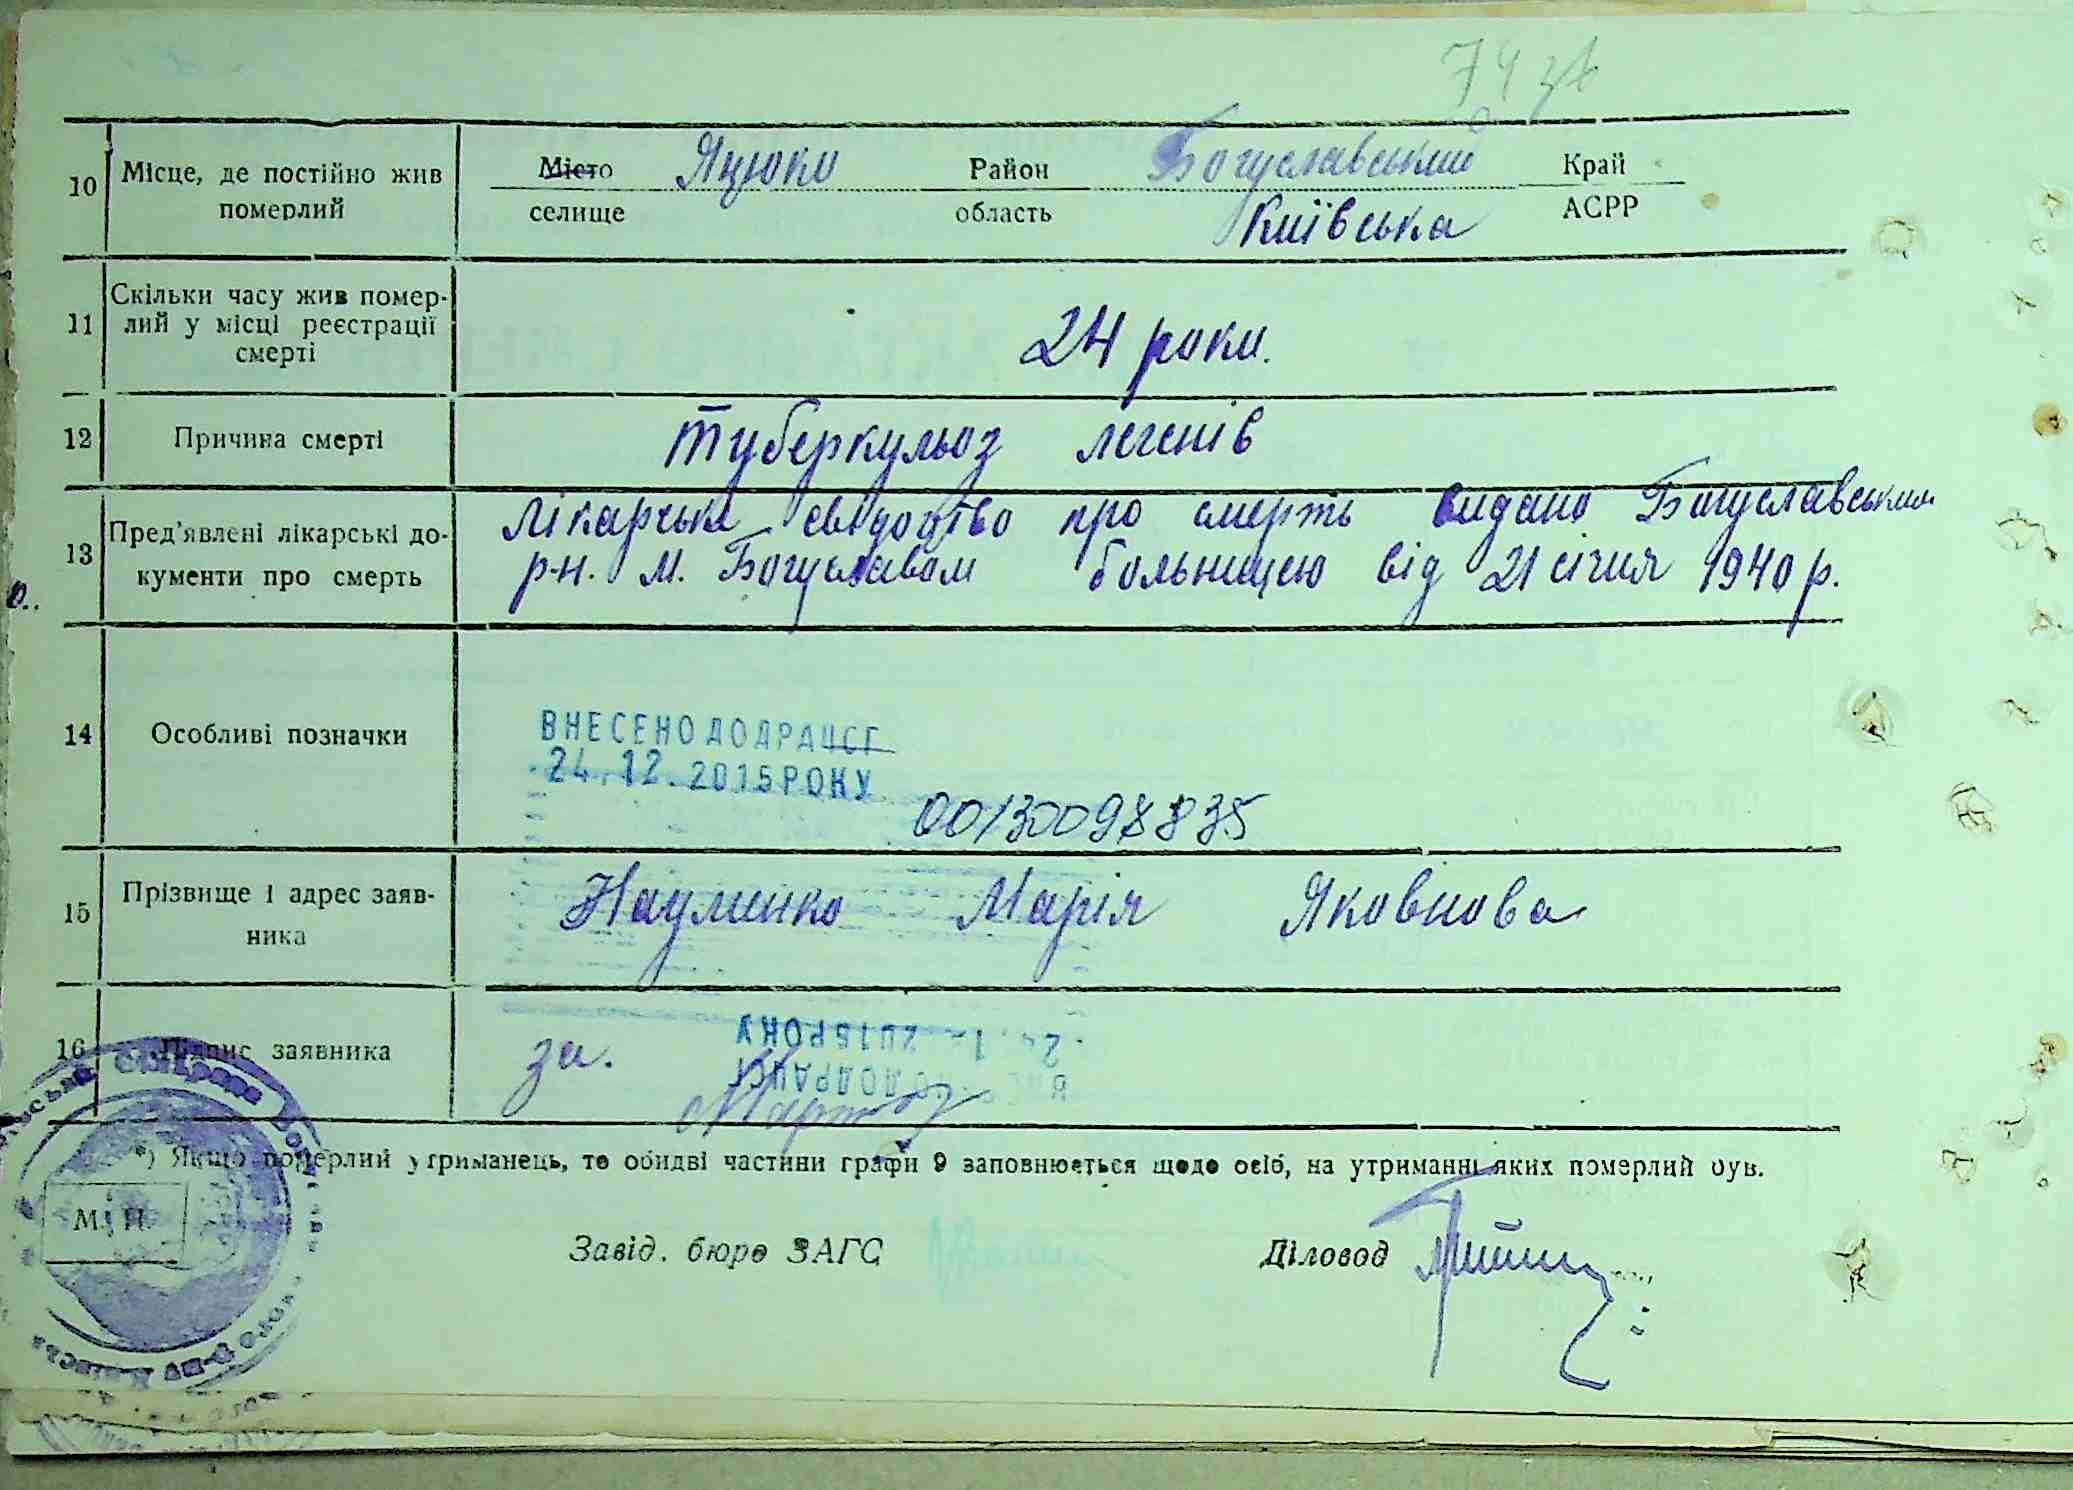 74 зв
10 Місце, де постійно жив померлий
Місто Яцюки Район Богуславський Край
селище область Київська АСРР
11 Скільки часу жив помер-
лий у місці реєстрації
смерті
24 роки.
12 Причина смерті Туберкульоз легенів
13 Пред'явлені лікарські до-
кументи про смерть
Лікарське свідоцтво про смерть видано Богуславським
р-н. м. Богуславом больницею від 21 січня 1940 р.
14 Особливі позначки
ВНЕСЕНО ДО ДРАЦСГ
24.12.2015 РОКУ
00130098835
15 Прізвище і адрес заяв-
ника
Науменко Марія Яковнова
16 Підпис заявника за.
*) Якщо померлий утриманець, то обидві частини графи 9 заповнюється щодо осіб, на утриманні яких померлий був.
М. П.
Завід. бюро ЗАГС Діловод